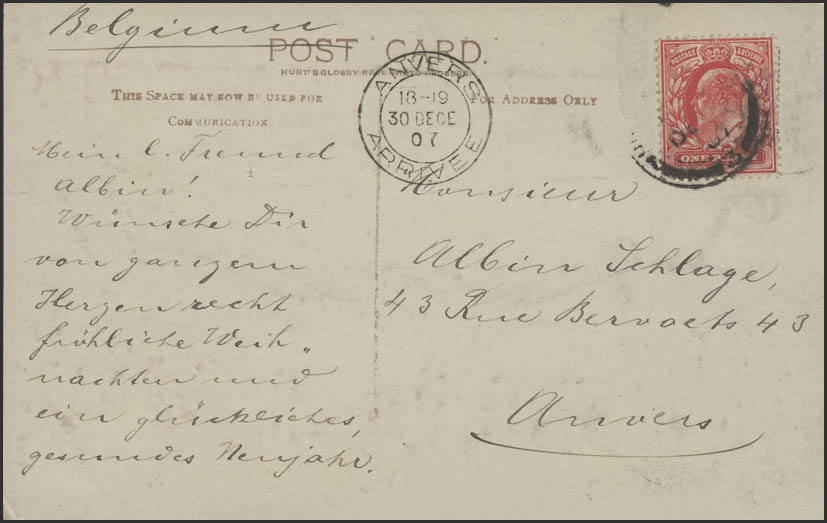 Belgium
POST CARD.
THIS SPACE MAY NOW BE USED FOR
COMMUNICATION
FOR ADDRESS ONLY
ANVERS
18-19
30 DECE
07
ARRIVEE
POSTAGE REVENUE
ONE
Mein l. Freund
Albin!
Wünsche Dir
von ganzem
Herzen recht
fröhliche Weih„
nachten und
ein glückliches,
gesundes Neujahr.
Monsieur
Albin Schlage,
43 Rue Bervoets 43
Anvers